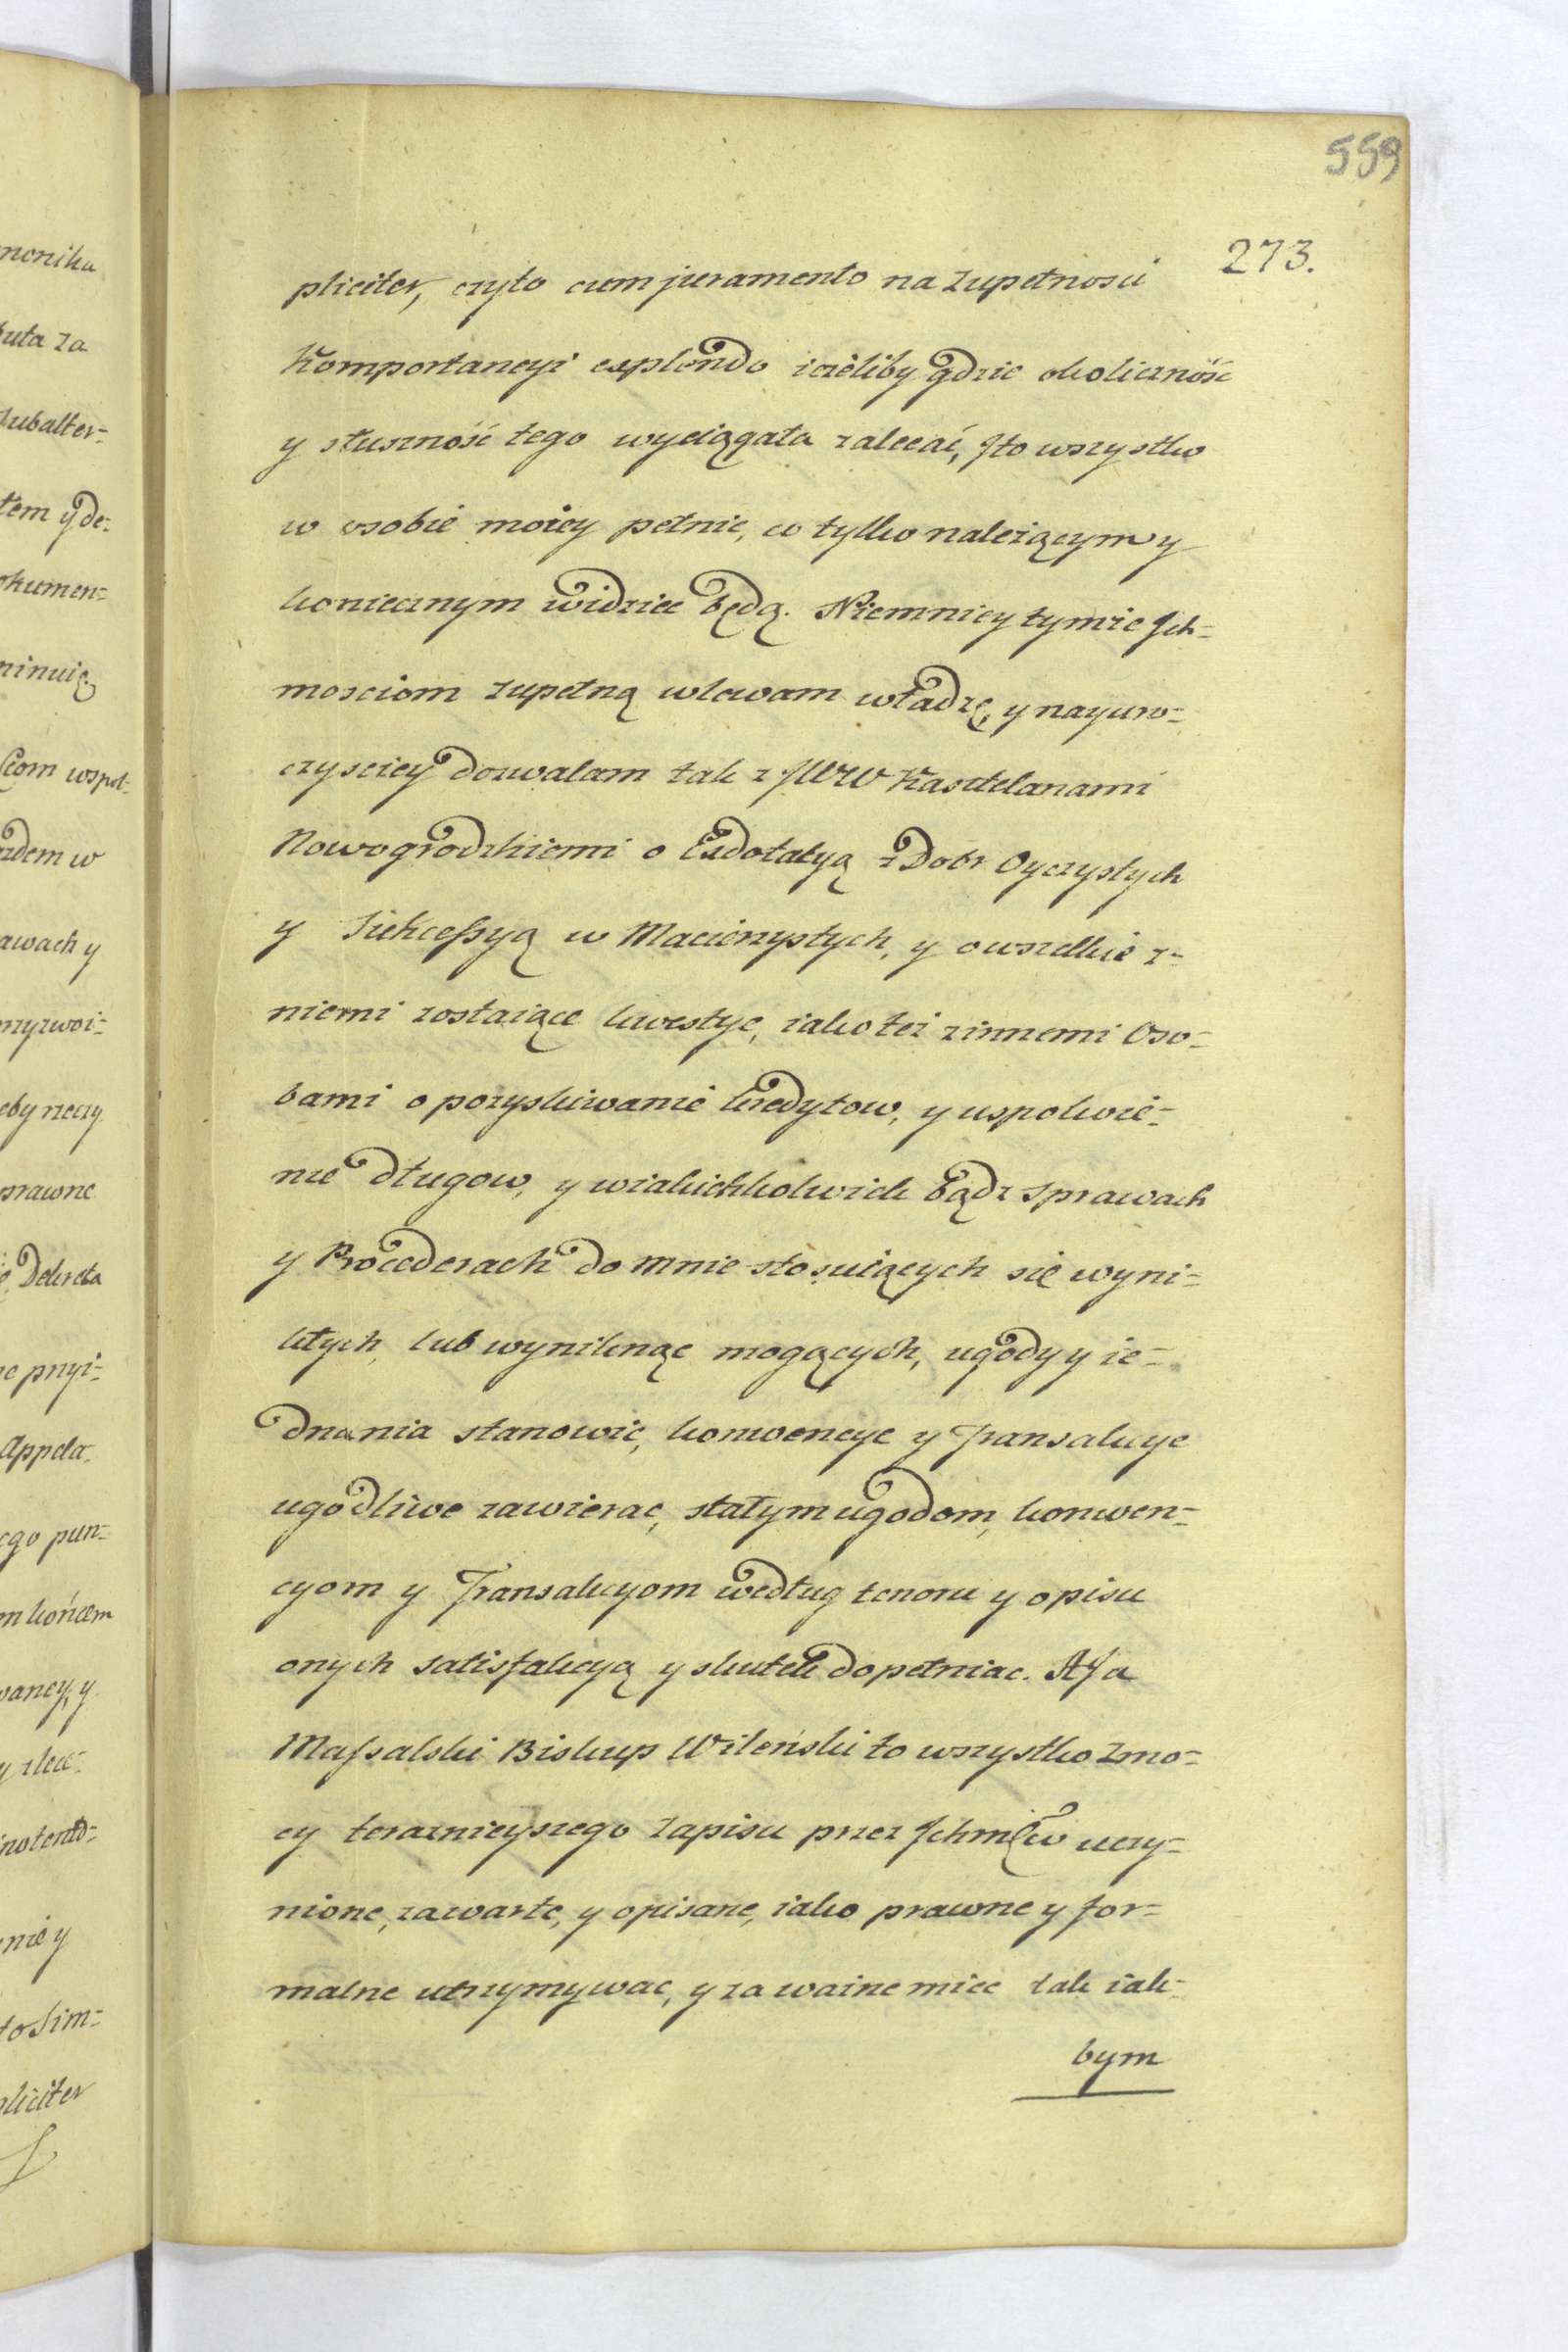 559
273.
pliciter, czyto cum juramento na zupełnosci
Komportancyi explendo ieżeliby gdzie okoliczność
y słuszność tego wyciągała zalecać, Jto wszystko
w osobie moiey pełnic, co tylko należącym y
koniecznym widziec będą. Niemniey tymże Jch-
mosciom zupełną wlewam władzę, y nayuro-
czysciey dozwalam tak z JWW Kasztelanami
Nowogrodzkiemi o Exdotatyą z Dobr Oyczystych
y Sukceſsyą w Macierzystych, y o wszelkie z-
niemi zostaiące kwestye, iako też zinnemi Oso-
bami o pozyskiwanie kredytow, y uspokoie-
nie długow, y wiakichkolwiek bądz sprawach
y Procederach do mnie stosuiących się wyni-
kłych, lub wyniknąc mogących, ugody y ie-
dnania stanowic, konwencye y Transakcye
ugodliwe zawierac, stałym ugodom, konwen-
cyom y Transakcyom według tenoru y opisu
onych satisfakcyą y skutek dopełniac. A Ja
Maſsalski Biskup Wileński to wszystko zmo-
cy teraznieyszego zapisu przez Jchmćw uczy-
nione, zawarte, y opisane, iako prawne y for-
malne utrzymywac, y za ważne miec tak iak-
bym
nonika
buta za
subalter-
tem y de-
okumen-
minuię
ściom wspol-
zdem w
awach y
przyzwoi-
eby rzeczy
prawne
Dekreta
ne przyi-
Appela.
ego pun-
m końcem
waney, y
y zlece-
nie y
to Sim-
pliciter